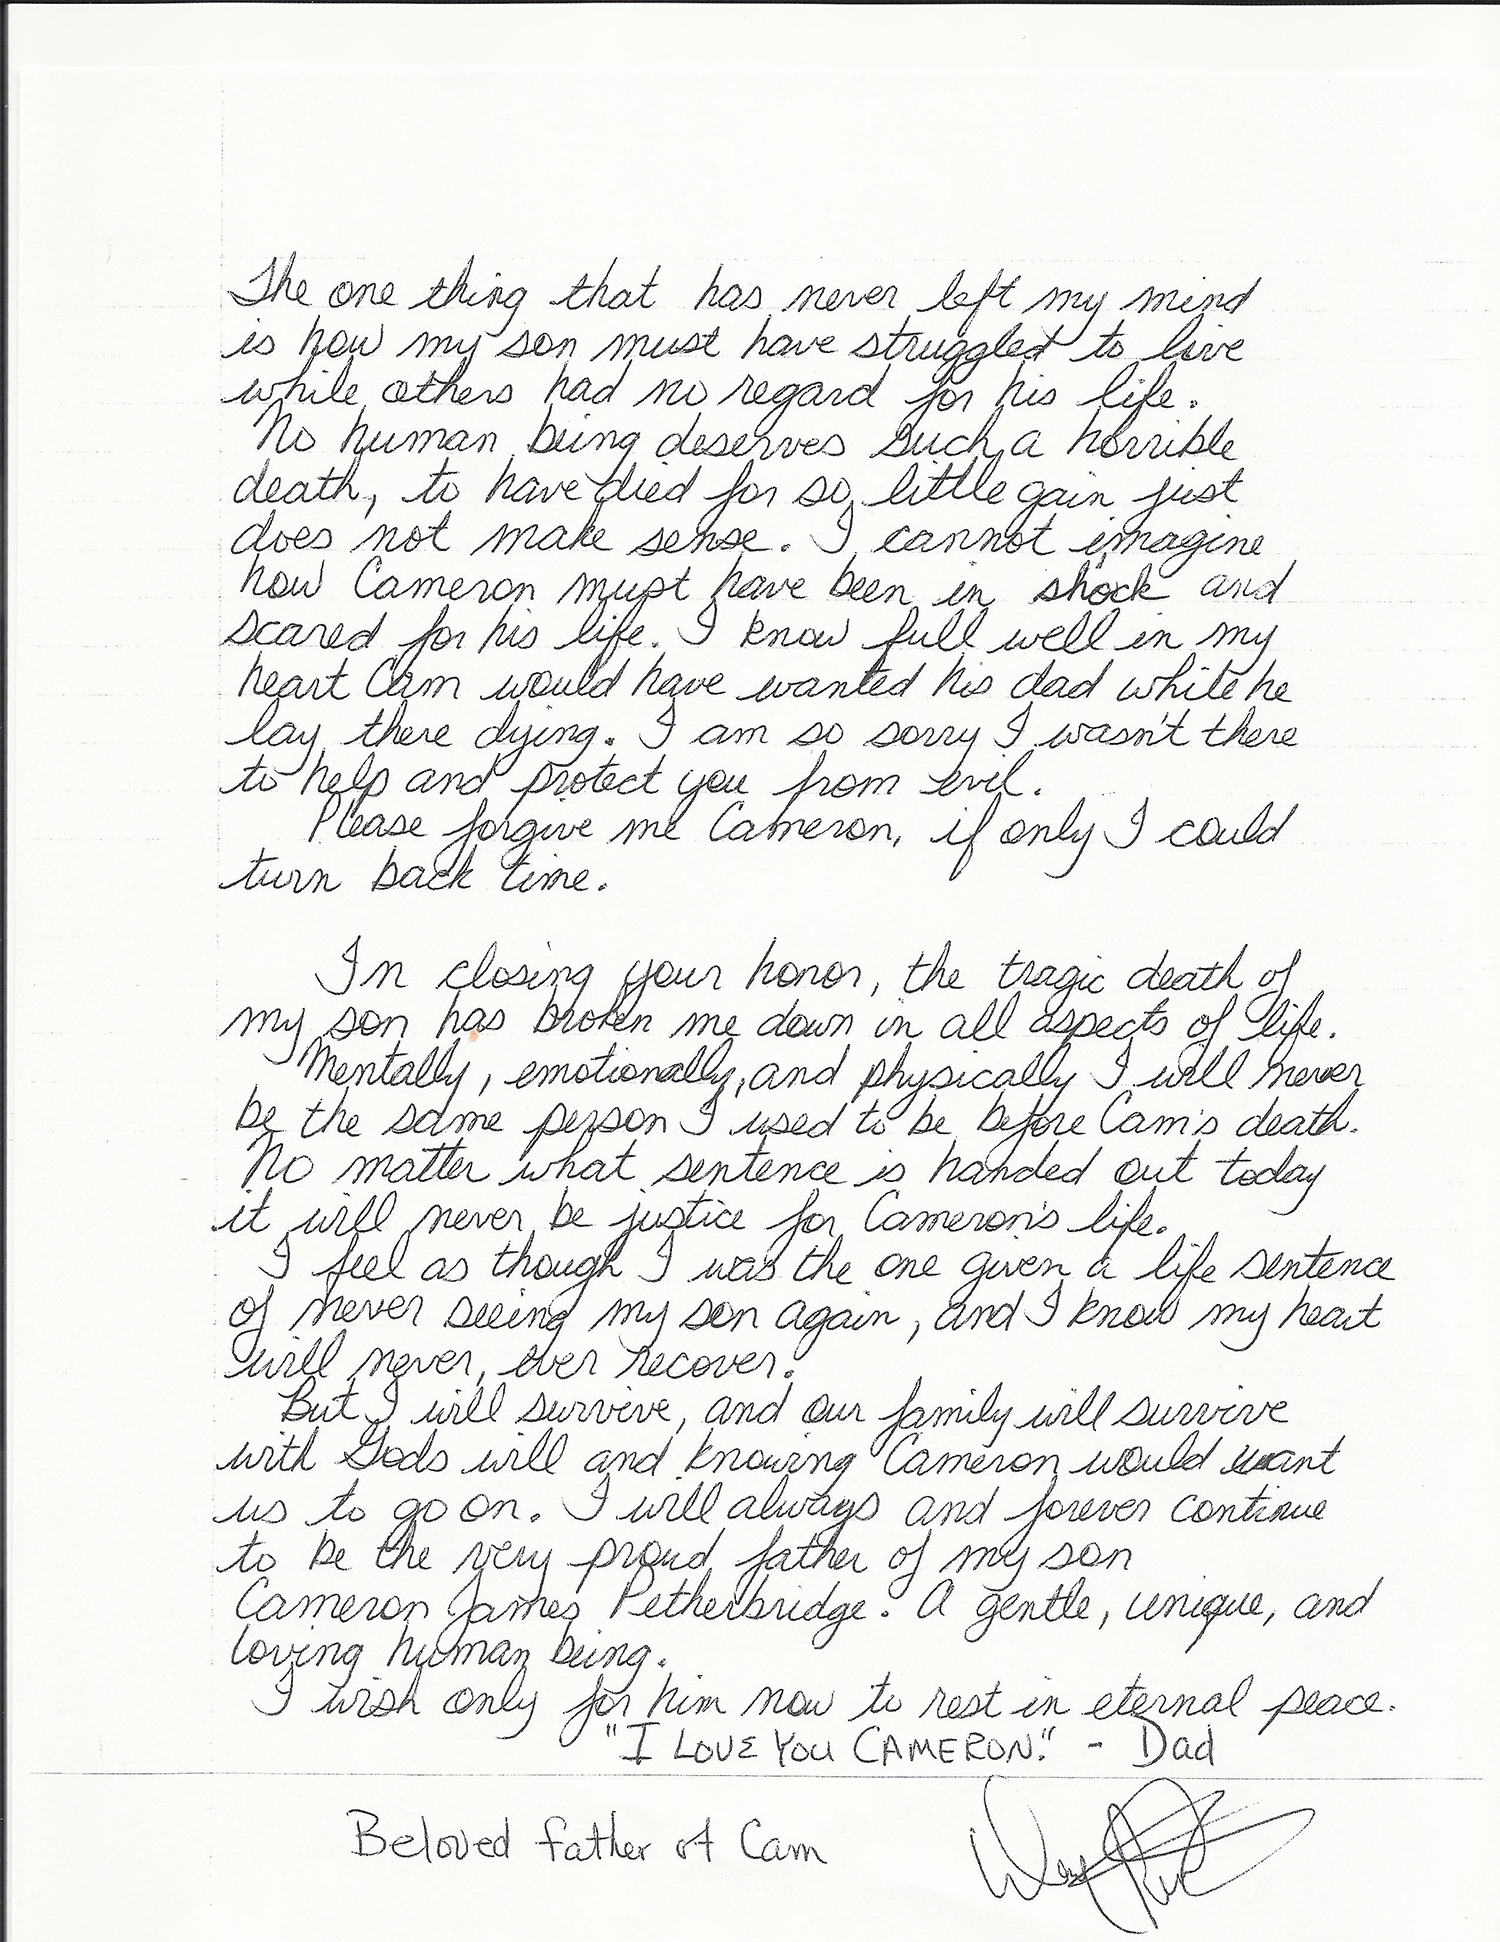 The one thing that has never left my mind
is how my son must have struggled to live
while others had no regard for his life.
No human being deserves such a horrible
death, to have died for so little gain just
does not make sense. I cannot imagine
how Cameron must have been in shock and
scared for his life. I know full well in my
heart Cam would have wanted his dad while he
lay there dying. I am so sorry I wasn't there
to help and protect you from evil.
Please forgive me Cameron, if only I could
turn back time.
In closing your honor, the tragic death of
my son has broken me down in all aspects of life.
Mentally, emotionally, and physically I will never
be the same person I used to be before Cam's death.
No matter what sentence is handed out today
it will never be justice for Cameron's life.
I feel as though I was the one given a life sentence
of never seeing my son again, and I know my heart
will never, ever recover.
But I will survive, and our family will survive
with Gods will and knowing Cameron would want
us to go on. I will always and forever continue
to be the very proud father of my son
Cameron James Petherbridge. A gentle, unique, and
loving human being.
I wish only for him now to rest in eternal peace.
"I LOVE YOU CAMERON." - Dad
Beloved father of Cam